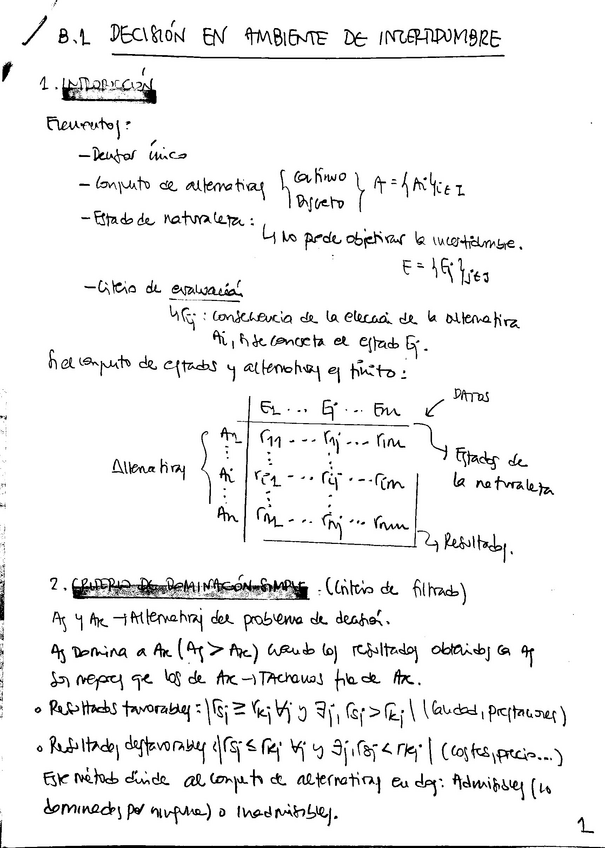 B.1 DECISIÓN EN AMBIENTE DE INCERTIDUMBRE
1. INTRODUCCIÓN
Elementos:
- Decisor único
- Conjunto de alternativas { Continuo Discreto } A = {Ai}i∈I
- Estado de naturaleza:
↳ No puede objetivar la incertidumbre.
E = {Ej}j∈J
- Criterio de evaluación
↳ rij : consecuencia de la elección de la alternativa
Ai, si se concreta el estado Ej.
Si el conjunto de estados y alternativas es finito:
E1 ... Ej ... Em ← DATOS
A1 r11 --- r1j --- r1m → Estados de
Alternativas { Ai ri1 --- rij --- rim la naturaleza
An rn1 --- rnj --- rnm
↳ Resultados.
2. CRITERIO DE DOMINACIÓN SIMPLE : (Criterio de filtrado)
As y Ak → Alternativas del problema de decisión.
As Domina a Ak (As > Ak) cuando los resultados obtenidos con As
son mejores que los de Ak → TAchamos fila de Ak.
• Resultados favorables : | rsj ≥ rkj ∀j y ∃j, rsj > rkj | (Calidad, prestaciones)
• Resultados desfavorables : | rsj ≤ rkj ∀j y ∃j, rsj < rkj | (costes, precio...)
Este método divide al conjunto de alternativas en dos: Admisibles (no
dominadas por ninguna) o Inadmisibles.
1